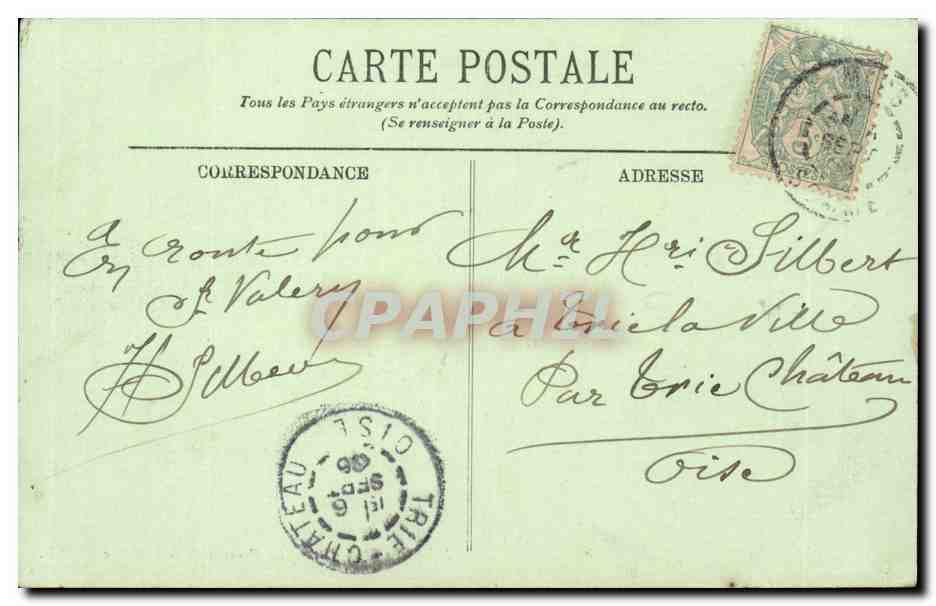 CARTE POSTALE
Tous les Pays étrangers n'acceptent pas la Correspondance au recto.
(Se renseigner à la Poste).
CORRESPONDANCE
ADRESSE
En route pour
St Valery
Mr Hri Silbert
à Trie la Ville
Par Trie Château
Oise
CPAPHIL
TRIE-CHATEAU
OISE
6
SEPT
06